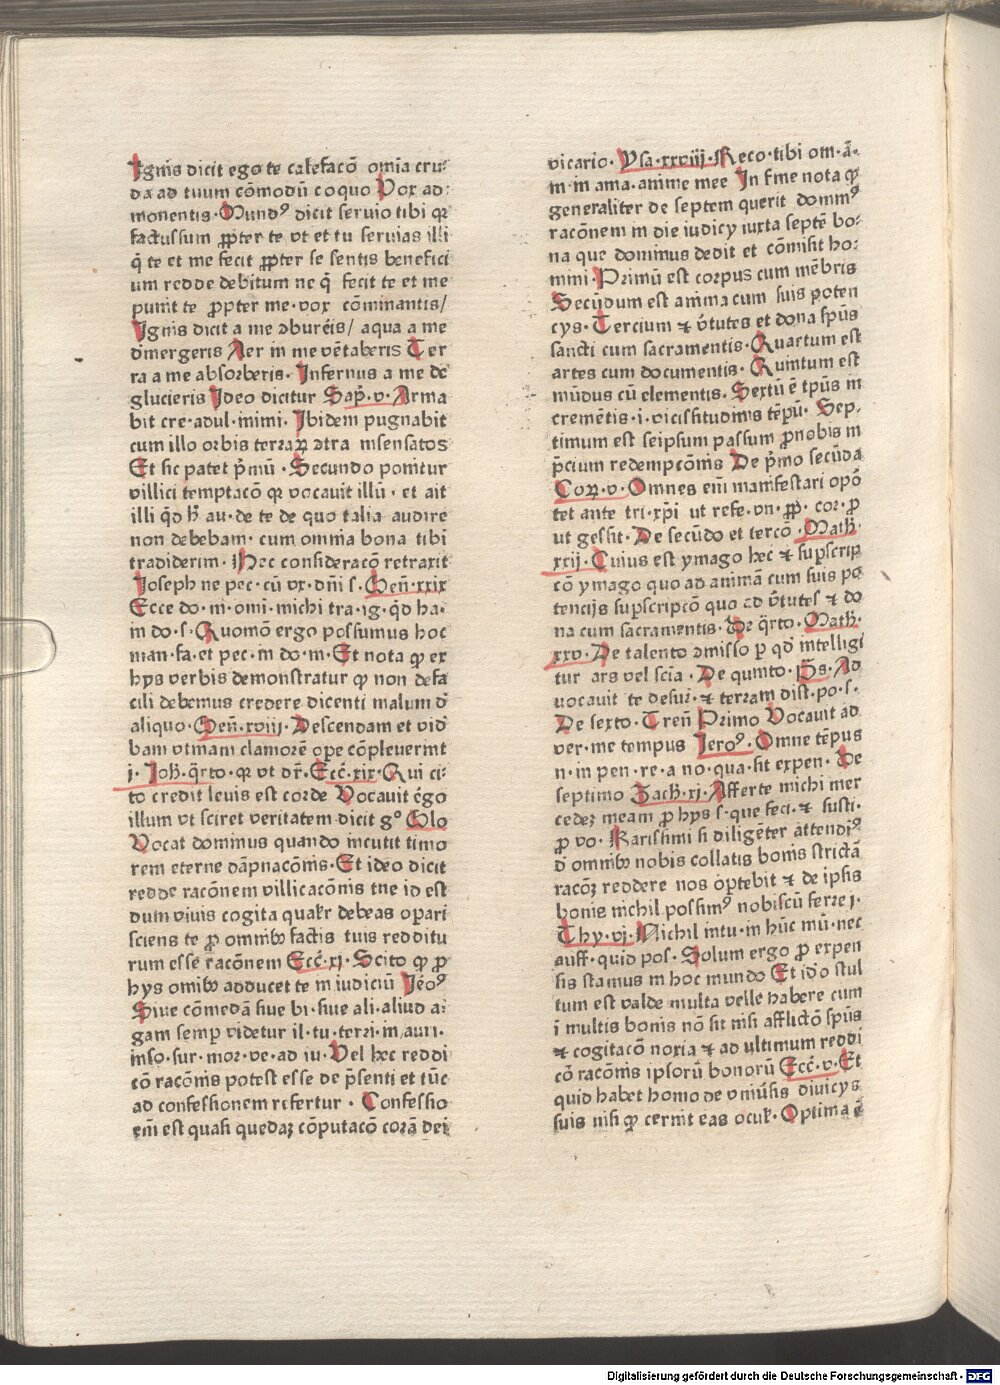 Ignis dicit ego te calefacō om̄ia cru⸗
da ad tuum cōmodū coquo Vox ad⸗
monentis· Mundꝰ dicit seruio tibi qꝛ
factus sum ꝓpter te vt et tu seruias illi
q̄ te et me fecit ꝓpter se sentis benefici
um redde debitum ne q̄ fecit te et me
punit te ꝓpter me· vox cōminantis/
Ignis dicit a me ↄburēis/ aqua a me
dīmergeris Aer in me vētaberis Ter
ra a me absorberis· Infernus a me de
glucieris Ideo dicitur Sap̄· v· Arma
bit cre· adul· inimi· Ibidem pugnabit
cum illo orbis terraꝝ ↄtra insensatos
Et sic patet p̄mū· Secundo ponitur
villici temptacō qꝛ vocauit illū· et ait
illi q̄d h̄ au· de te de quo talia audire
non debebam· cum omnia bona tibi
tradiderim· Hec consideracō retraxit
Joseph ne pec· cū vx· dn̄i s· Gen̄· xxix
Ecce do· m· omī· michi tra· ig· q̄d ha·
in do· s· Quomō ergo possumus hoc
man· fa· et pec· in do· m· Et nota ꝙ ex
hys verbis demonstratur ꝙ non defa
cili debemus credere dicenti malum d̄
aliquo· Gen̄· xviij· Descendam et vid̄
bam vtinam clamorē ope cōpleuerint
j· Joh̄· q̄rto· qꝛ vt dr̄· Ecc̄· xix· Qui ci⸗
to credit leuis est corde Vocauit ergo
illum vt sciret veritatem dicit gº Glo
Vocat dominus quando incutit timo
rem eterne dāpnacōnis· Et ideo dicit
redde racōnem villicacōnis tue id est
dum viuis cogita qualr̄ debeas opari
sciens te ꝓ omnibꝫ factis tuis redditu
rum esse racōnem Ecc̄· xj· Scito ꝙ ꝓ
hys omibꝫ adducet te in iudiciū Jeoꝰ
Siue cōmedā siue bi· siue ali· aliud a⸗
gam semꝑ videtur il· tu· terri· in auri·
inso· sur· mor· ve· ad iu· Vel hec reddi
cō racōnis potest esse de p̄senti et tūc
ad confessionem refertur· Confessio
em̄ est quasi quedaꝫ cōputacō corā dei
vicario· Ysa· xxviij· Reco· tibi om· ā·
m· in ama· anime mee In fine nota ꝙ
generaliter de septem querit dominꝰ
racōnem in die iudicy iuxta septē bo⸗
na que dominus dedit et cōmisit ho⸗
mini· Primū est corpus cum mēbris
Secūdum est anima cum suis poten
cys· Tercium ⁊ v̄tutes et dona sp̄us
sancti cum sacramentis· Quartum est
artes cum documentis· Quintum est
mūdus cū elementis· Sextū ē tp̄us in
crementis· i· vicissitudinis tēpū· Sep⸗
timum est seipsum passum ꝓ nobis in
p̄cium redempcōnis De p̄mo secūda
Coꝝ· v· Omnes em̄ manifestari opō
tet ante tri· xp̄i ut refe· vn· ꝓp̄· cor· ꝓ
ut gessit· De secūdo et tercō· Math̄·
xxij· Cuius est ymago hec ⁊ suꝑscrip
cō ymago quo ad animā cum suis po
tencijs suꝑscripcō quo ad v̄tutes ⁊ do
na cum sacramentis· De q̄rto· Math̄·
xxv· De talento amisso ꝑ qd̄ intelligi
tur ars vel scīa· De quinto· Ps̄· Ad
uocauit te desur̄· ⁊ terram dist· po· s·
De sexto· Tren̄ Primo Vocauit ad
ver· me tempus Jeroꝰ· Omne tēpus
n· in pen· re· a no· qua· sit expen· De
septimo Zach̄· xj· Afferte michi mer
cedeꝫ meam ꝓ hys s· que feci· ⁊ susti·
ꝓ vo· Karissimi si diligēter attendiꝰ
d̄ omnibꝫ nobis collatis bonis strictā
racōꝫ reddere nos oportebit ⁊ de ipsis
bonis nichil possimꝰ nobiscū ferre j·
Thy· vj· Nichil intu· in hūc mū· nec
auff· quid pos· Solum ergo ꝓ expen
sis stamus in hoc mundo Et idō stul
tum est valde multa velle habere cum
ī multis bonis nō sit nisi afflictō sp̄us
⁊ cogitacō noxia ⁊ ad ultimum reddi
cō racōnis ipsorū bonorū Ecc̄· v· Et
quid habet homo de vniūsis diuicys
suis nisi ꝙ cernit eas oculꝭ· Optima ē
Digitalisierung gefördert durch die Deutsche Forschungsgemeinschaft - DFG